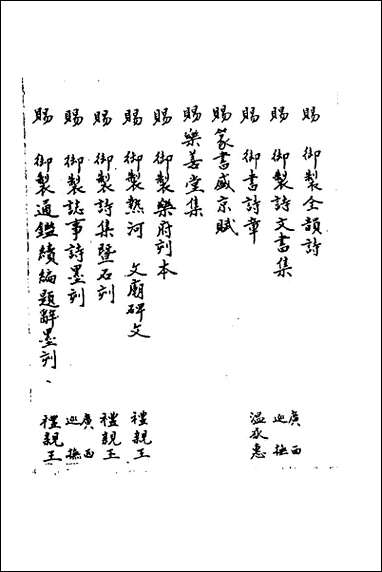 賜 御製全韻詩
賜 御製詩文書集 廣西巡撫
賜 御書詩章 溫承惠
賜 篆書盛京賦
賜樂善堂集
賜 御製樂府刻本
賜 御製熱河 文廟碑文 禮親王
賜 御製詩集暨石刻 禮親王
賜 御製誌事詩墨刻 廣西巡撫
賜 御製通鑑續編題辭墨刻、 禮親王